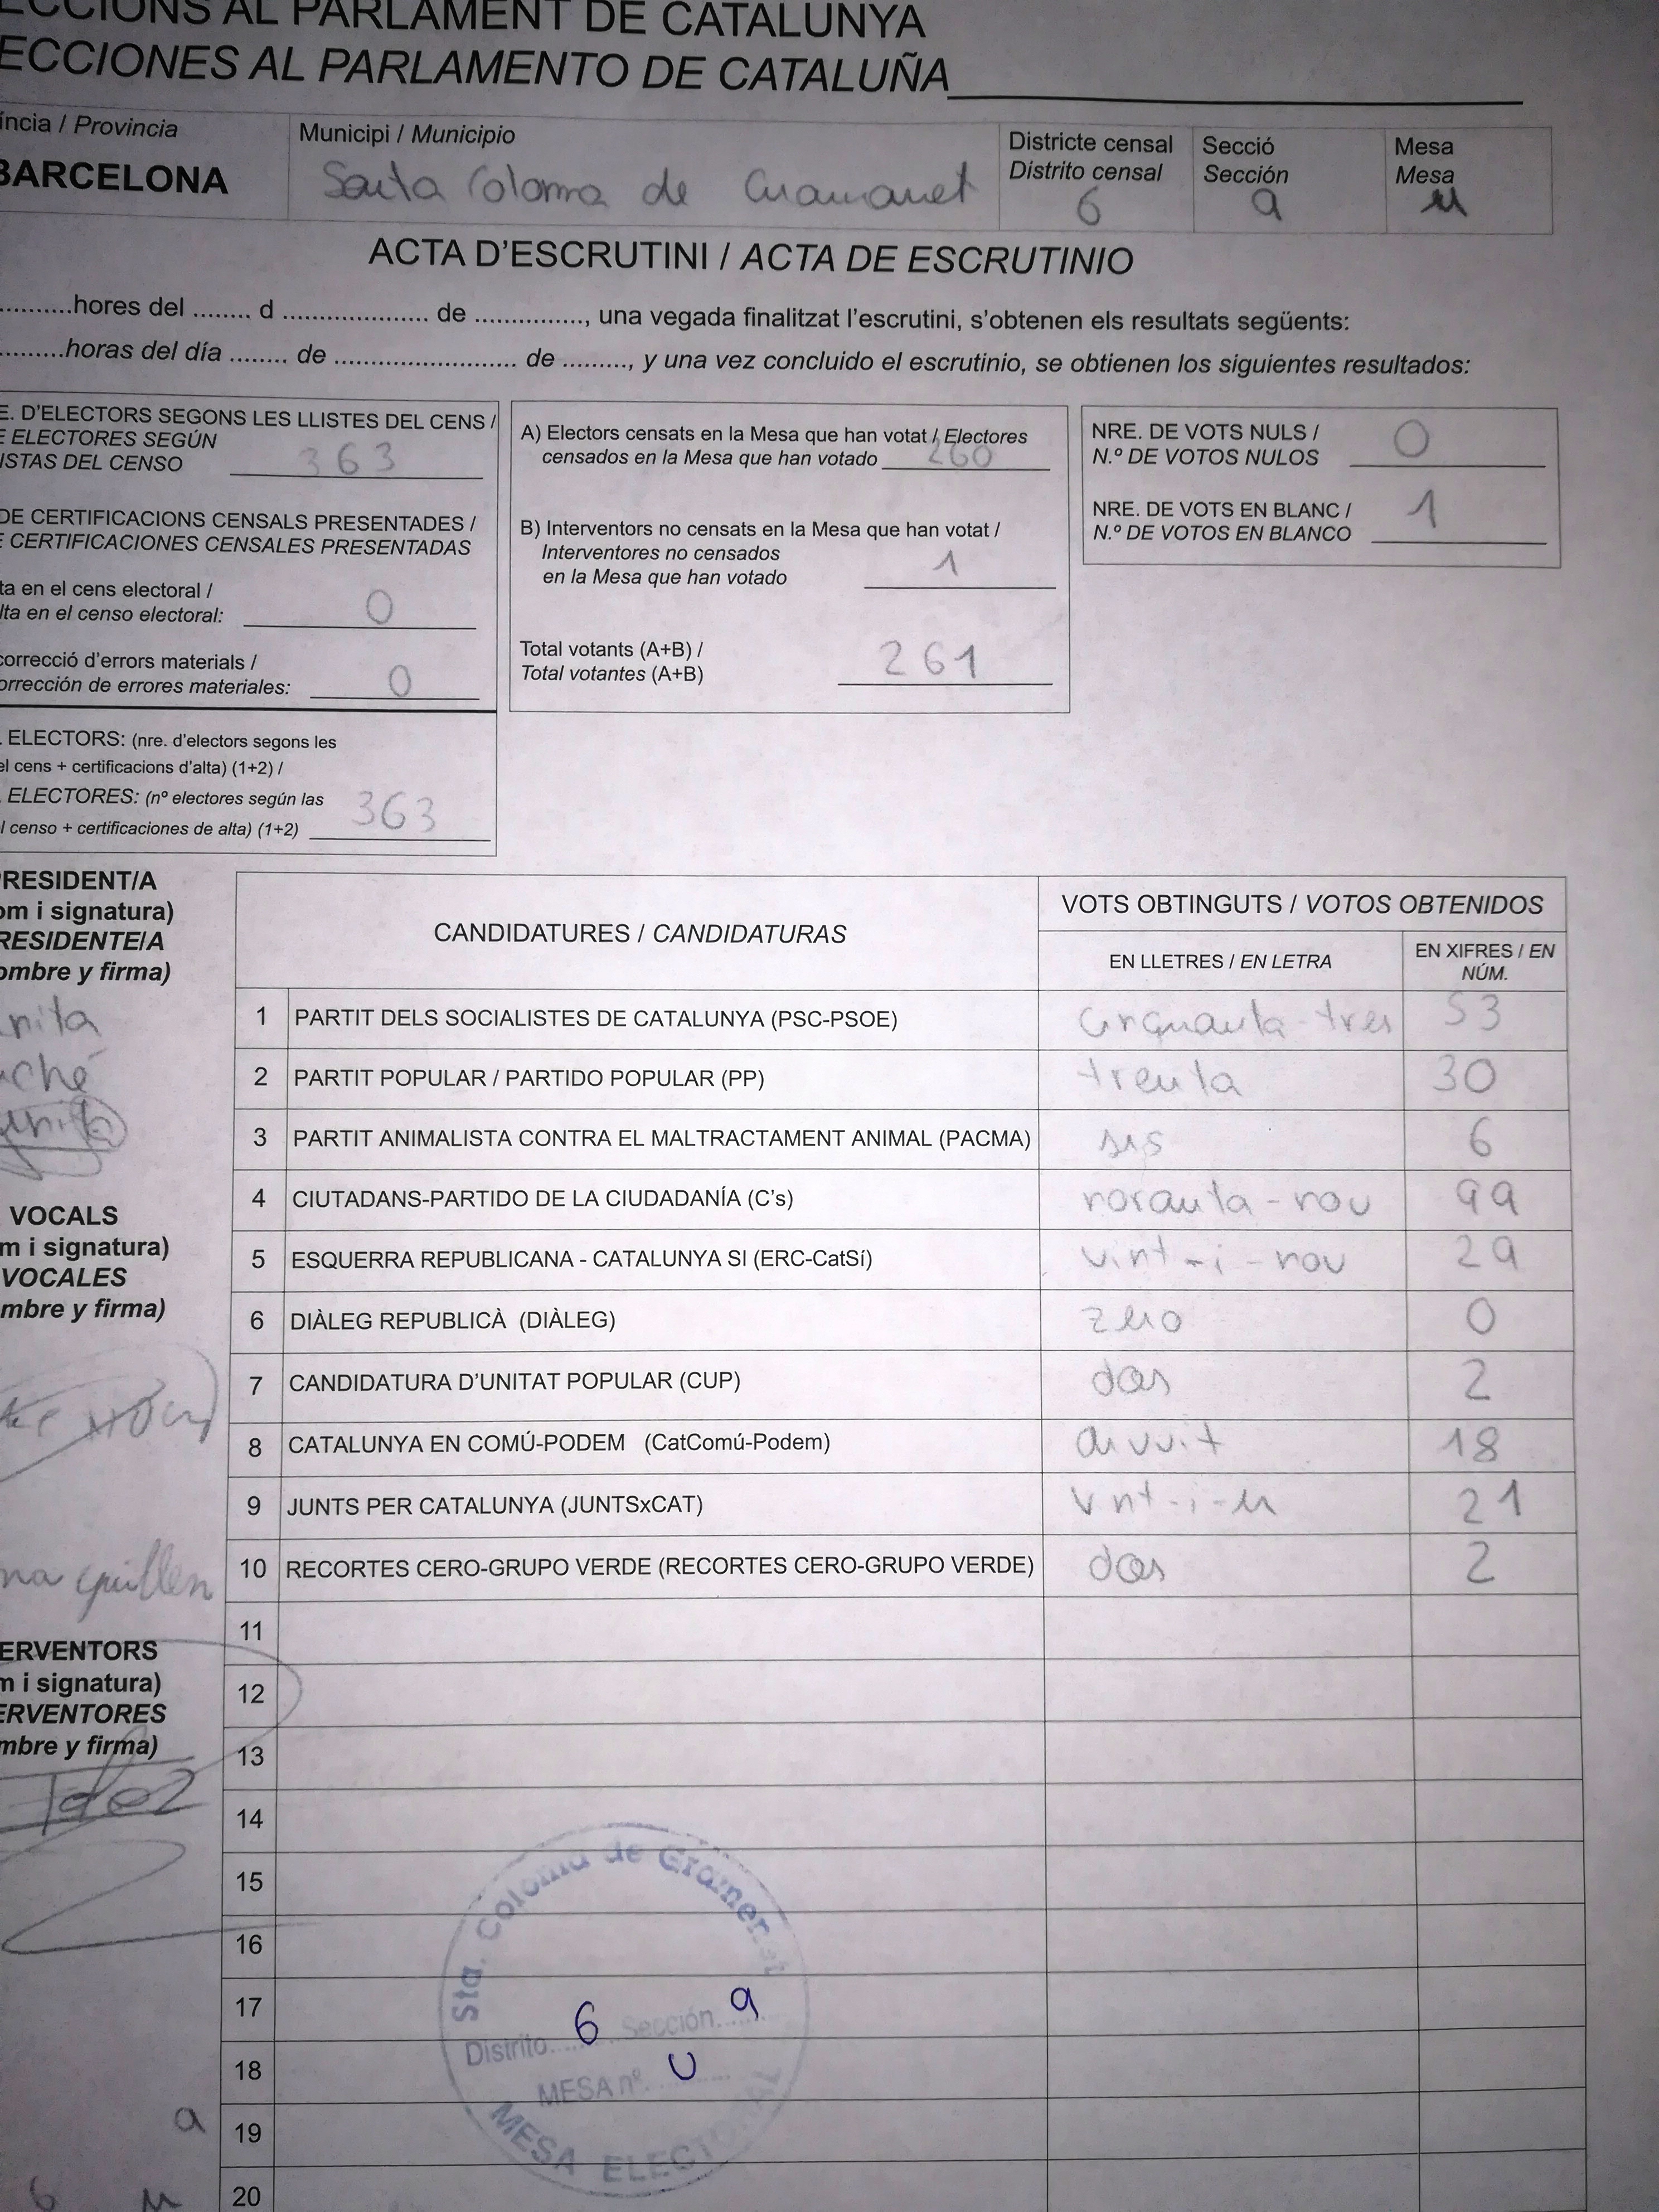 ECCIONS AL PARLAMENT DE CATALUNYA
ECCIONES AL PARLAMENTO DE CATALUÑA
íncia / Província
BARCELONA
Municipi / Municipio
Santa Coloma de Gramanet
Districte censal
Distrito censal
6
Secció
Sección
9
Mesa
Mesa
U
ACTA D'ESCRUTINI / ACTA DE ESCRUTINIO
..........hores del ........ d .................... de ..............., una vegada finalitzat l'escrutini, s'obtenen els resultats següents:
.........horas del día ........ de ......................... de ........., y una vez concluido el escrutinio, se obtienen los siguientes resultados:
E. D'ELECTORS SEGONS LES LLISTES DEL CENS /
E ELECTORES SEGÚN
ISTAS DEL CENSO 363
DE CERTIFICACIONS CENSALS PRESENTADES /
E CERTIFICACIONES CENSALES PRESENTADAS
ta en el cens electoral /
lta en el censo electoral: 0
correcció d'errors materials /
orrección de errores materiales: 0
. ELECTORS: (nre. d'electors segons les
el cens + certificacions d'alta) (1+2) /
. ELECTORES: (nº electores según las
l censo + certificaciones de alta) (1+2) 363
A) Electors censats en la Mesa que han votat / Electores
censados en la Mesa que han votado 260
B) Interventors no censats en la Mesa que han votat /
Interventores no censados
en la Mesa que han votado 1
Total votants (A+B) /
Total votantes (A+B) 261
NRE. DE VOTS NULS /
N.º DE VOTOS NULOS 0
NRE. DE VOTS EN BLANC /
N.º DE VOTOS EN BLANCO 1
PRESIDENT/A
om i signatura)
RESIDENTE/A
ombre y firma)
VOCALS
m i signatura)
VOCALES
mbre y firma)
na guillen
ERVENTORS
m i signatura)
ERVENTORES
mbre y firma)
CANDIDATURES / CANDIDATURAS
VOTS OBTINGUTS / VOTOS OBTENIDOS
EN LLETRES / EN LETRA
EN XIFRES / EN
NÚM.
1 PARTIT DELS SOCIALISTES DE CATALUNYA (PSC-PSOE) cinquanta-tres 53
2 PARTIT POPULAR / PARTIDO POPULAR (PP) trenta 30
3 PARTIT ANIMALISTA CONTRA EL MALTRACTAMENT ANIMAL (PACMA) sis 6
4 CIUTADANS-PARTIDO DE LA CIUDADANÍA (C's) noranta-nou 99
5 ESQUERRA REPUBLICANA - CATALUNYA SI (ERC-CatSí) vint-i-nou 29
6 DIÀLEG REPUBLICÀ (DIÀLEG) zero 0
7 CANDIDATURA D'UNITAT POPULAR (CUP) dos 2
8 CATALUNYA EN COMÚ-PODEM (CatComú-Podem) divuit 18
9 JUNTS PER CATALUNYA (JUNTSxCAT) vint-i-u 21
10 RECORTES CERO-GRUPO VERDE (RECORTES CERO-GRUPO VERDE) dos 2
11
12
13
14
15
16
17
18
19
20
Sta. Coloma de Gramenet
Distrito 6 Sección 9
MESA nº. U
MESA ELECTORAL
9
6 U